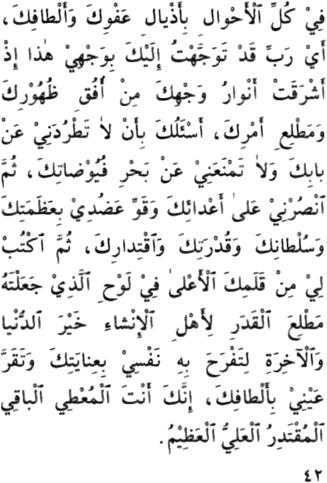 فِيْ كُلِّ ٱلْأَحْوالِ بِأَذْيالِ عَفْوِكَ وَأَلْطافِكَ،
أَيْ رَبِّ قَدْ تَوَجَّهْتُ إِلَيْكَ بِوَجْهِيْ هٰذا إِذْ
أَشْرَقَتْ أَنْوارُ وَجْهِكَ مِنْ أُفُقِ ظُهُوْرِكَ
وَمَطْلِعِ أَمْرِكَ، أَسْئَلُكَ بِأَنْ لاٰ تَطْرُدَنِيْ عَنْ
بابِكَ وَلاٰ تَمْنَعَنِيْ عَنْ بَحْرِ فُيُوْضاتِكَ، ثُمَّ
ٱنْصُرْنِيْ عَلىٰ أَعْدائِكَ وَقَوِّ عَضُدِيْ بِعَظَمَتِكَ
وَسُلْطانِكَ وَقُدْرَتِكَ وَٱقْتِدارِكَ، ثُمَّ ٱكْتُبْ
لِيْ مِنْ قَلَمِكَ ٱلْأَعْلىٰ فِيْ لَوْحِ ٱلَّذِيْ جَعَلْتَهُ
مَطْلِعَ ٱلْقَدَرِ لِأَهْلِ ٱلْإِنْشاءِ خَيْرَ ٱلدُّنْيا
وَٱلْآخِرَةِ لِتَفْرَحَ بِهِ نَفْسِيْ بِعِنايَتِكَ وَتَقَرَّ
عَيْنِيْ بِأَلْطافِكَ، إِنَّكَ أَنْتَ ٱلْمُعْطِي ٱلْباقِي
ٱلْمُقْتَدِرُ ٱلْعَلِيُّ ٱلْعَظِيْمُ.
٤٢